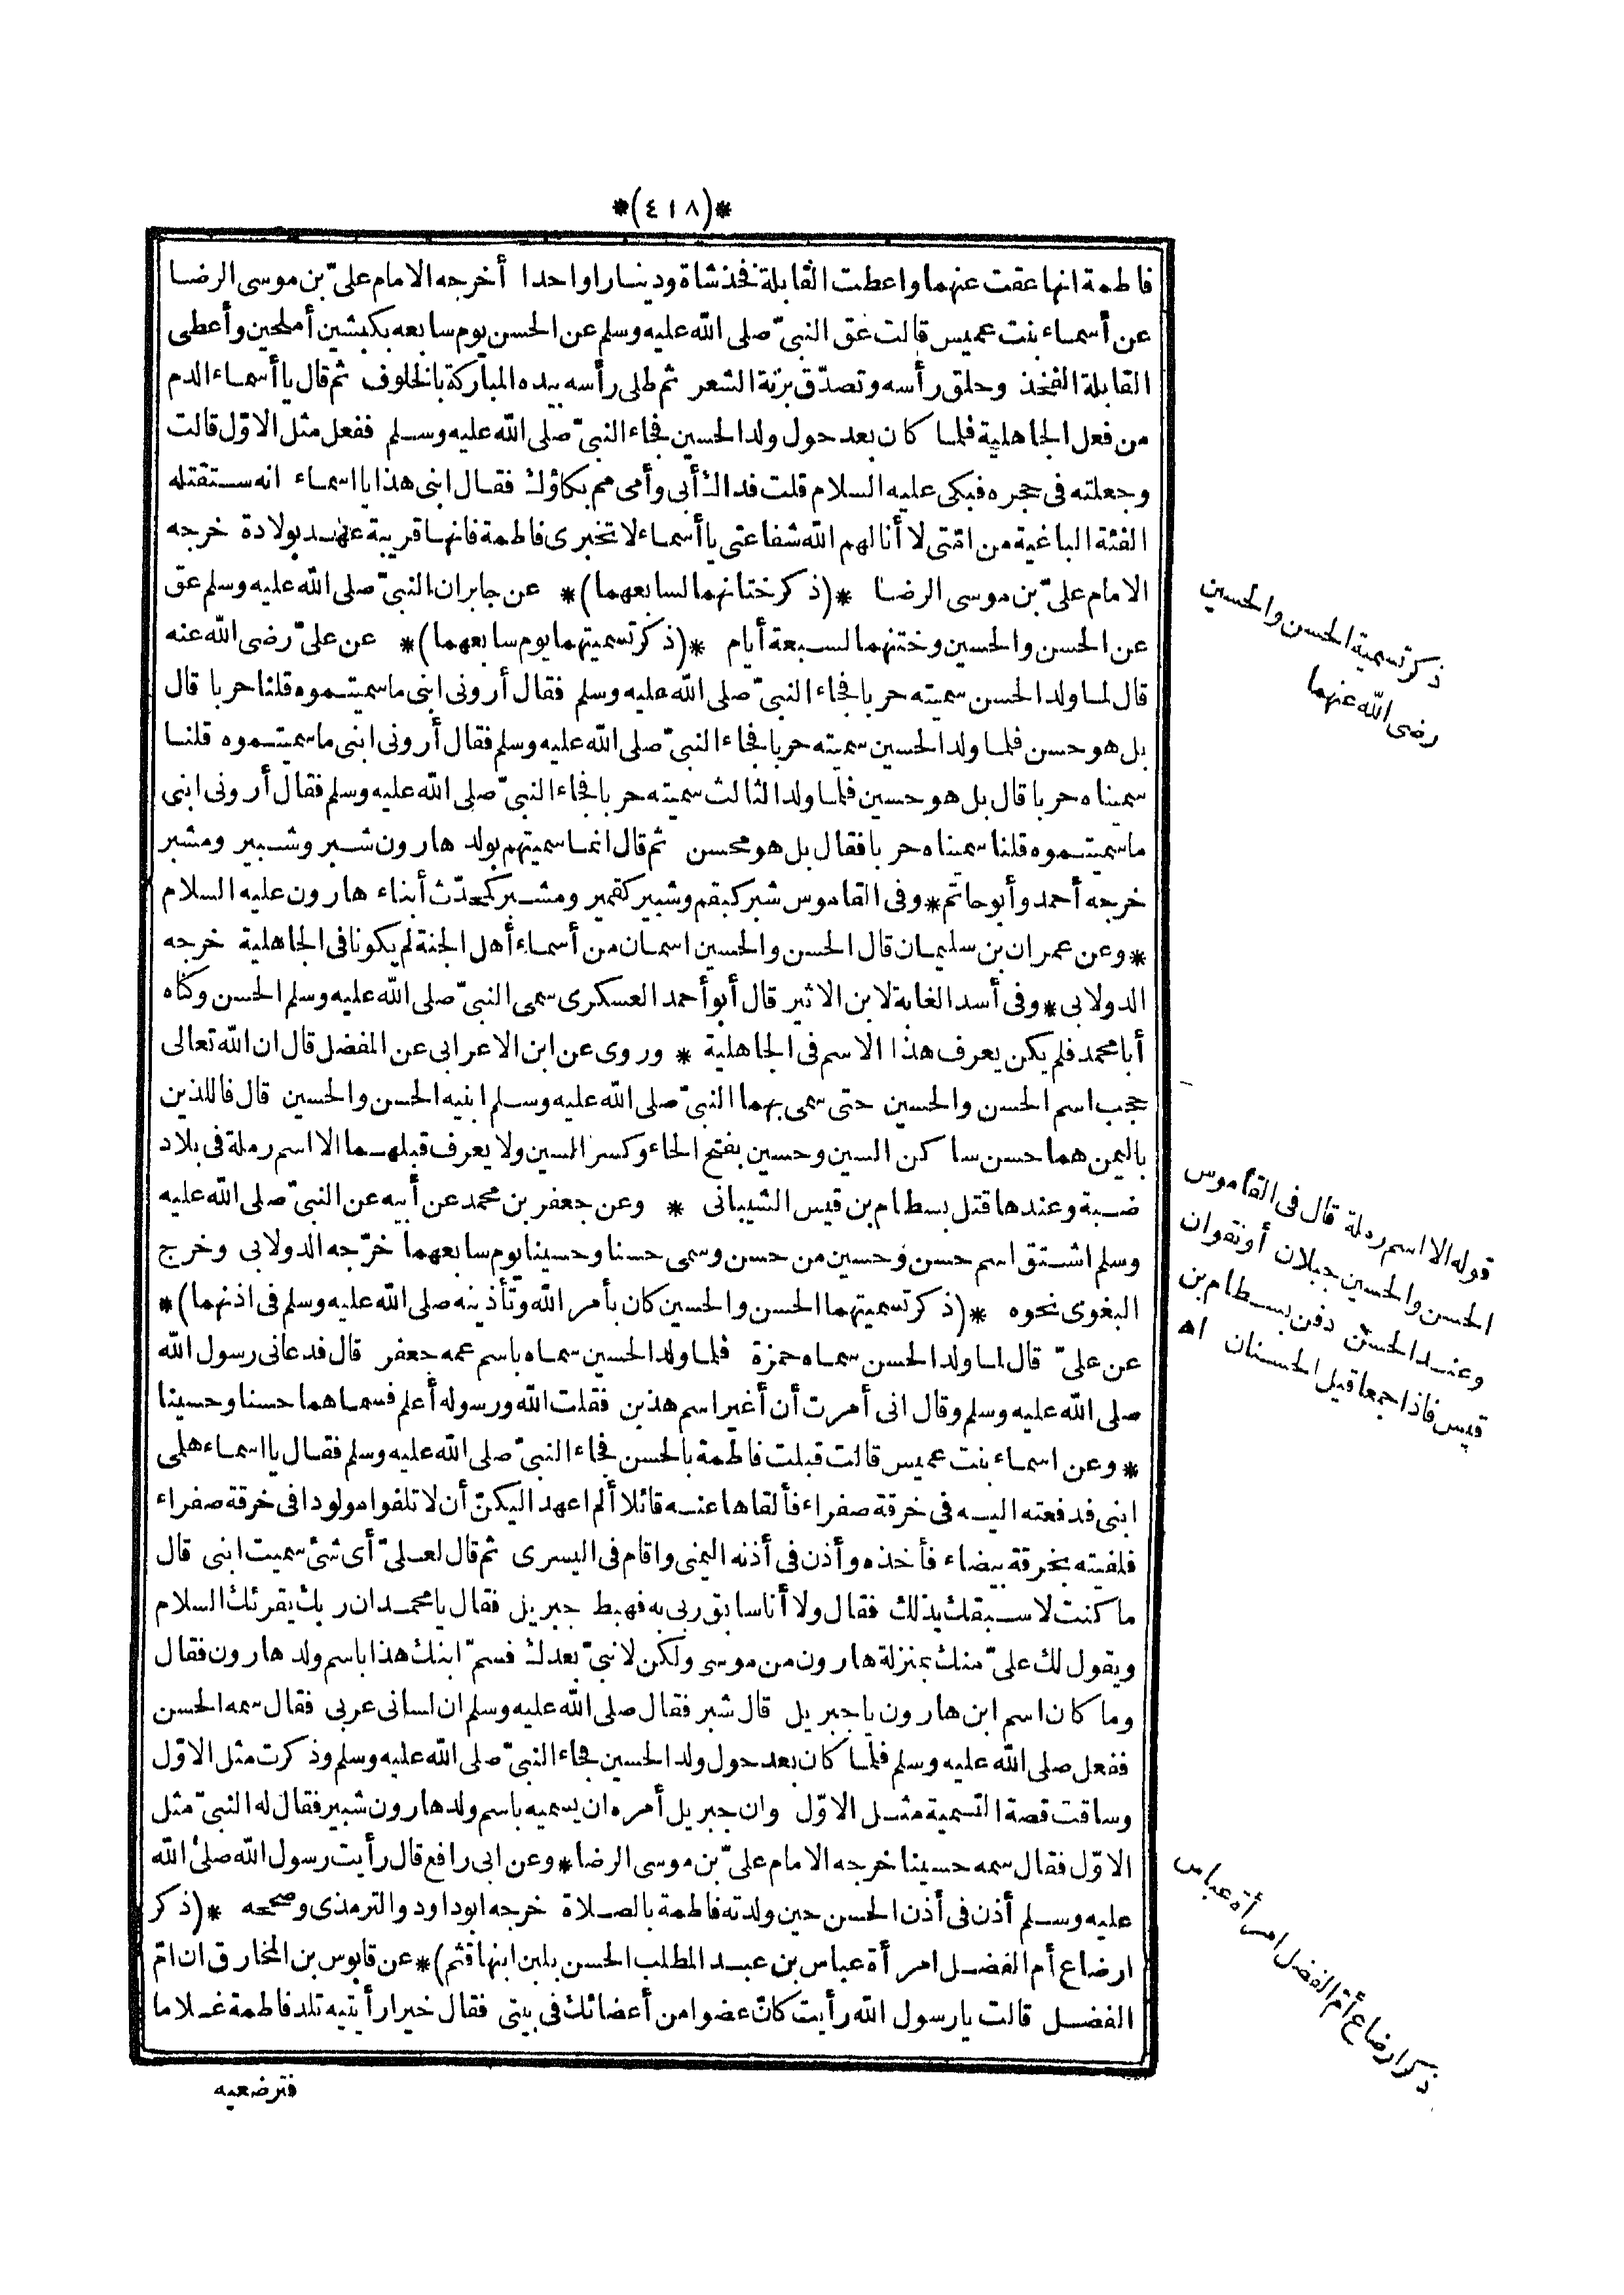 *(٤١٨)*
فاطمة انها عقت عنهما واعطت القابلة فخذ شاة ودينارا واحدا أخرجه الامام علىّ بن موسى الرضا
عن أسماء بنت عميس قالت عق النبىّ صلى الله عليه وسلم عن الحسن يوم سابعه بكبشين أملحين وأعطى
القابلة الفخذ وحلق رأسه وتصدّق بزنة الشعر ثم طلى رأسه بيده المباركة بالخلوف ثم قال يا أسماء الدم
من فعل الجاهلية فلما كان بعد حول ولد الحسين فجاء النبىّ صلى الله عليه وسلم ففعل مثل الاوّل قالت
وجعلته فى حجره فبكى عليه السلام قلت فداك أبى وأمى مم بكاؤك فقال ابنى هذا يا اسماء انه ستقتله
الفئة الباغية من امّتى لا أنالهم الله شفاعتى يا أسماء لا تخبرى فاطمة فانها قريبة عهد بولادة خرجه
الامام علىّ بن موسى الرضا *(ذكر ختانهما لسابعهما)* عن جابر ان النبىّ صلى الله عليه وسلم عق
عن الحسن والحسين وختنهما لسبعة أيام *(ذكر تسميتهما يوم سابعهما)* عن علىّ رضى الله عنه
قال لما ولد الحسن سميته حربا فجاء النبىّ صلى الله عليه وسلم فقال أرونى ابنى ما سميتموه قلنا حربا قال
بل هو حسن فلما ولد الحسين سميته حربا فجاء النبىّ صلى الله عليه وسلم فقال أرونى ابنى ما سميتموه قلنا
سميناه حربا قال بل هو حسين فلما ولد الثالث سميته حربا فجاء النبىّ صلى الله عليه وسلم فقال أرونى ابنى
ما سميتموه قلنا سميناه حربا فقال بل هو محسن ثم قال انما سميتهم بولد هارون شبر وشبير ومشبر
خرجه أحمد وأبو حاتم * وفى القاموس شبر كبقم وشبير كقمير ومشبر كمحدّث أبناء هارون عليه السلام
* وعن عمران بن سليمان قال الحسن والحسين اسمان من أسماء أهل الجنة لم يكونا فى الجاهلية خرجه
الدولابى * وفى أسد الغابة لابن الاثير قال أبو أحمد العسكرى سمى النبىّ صلى الله عليه وسلم الحسن وكناه
أبا محمد فلم يكن يعرف هذا الاسم فى الجاهلية * وروى عن ابن الاعرابى عن المفضل قال ان الله تعالى
حجب اسم الحسن والحسين حتى سمى بهما النبىّ صلى الله عليه وسلم ابنيه الحسن والحسين قال فاللذين
باليمن هما حسن ساكن السين وحسين بفتح الحاء وكسر السين ولا يعرف قبلهما الا اسم رملة فى بلاد
ضبة وعندها قتل بسطام بن قيس الشيبانى * وعن جعفر بن محمد عن أبيه عن النبىّ صلى الله عليه
وسلم اشتق اسم حسن وحسين من حسن وسمى حسنا وحسينا يوم سابعهما خرّجه الدولابى وخرج
البغوى نحوه *(ذكر تسميتهما الحسن والحسين كان بأمر الله وتأذينه صلى الله عليه وسلم فى اذنهما)*
عن علىّ قال لما ولد الحسن سماه حمزة فلما ولد الحسين سماه باسم عمه جعفر قال فدعانى رسول الله
صلى الله عليه وسلم وقال انى أمرت أن أغير اسم هذين فقلت الله ورسوله أعلم فسماهما حسنا وحسينا
* وعن اسماء بنت عميس قالت قبلت فاطمة بالحسن فجاء النبىّ صلى الله عليه وسلم فقال يا اسماء هلمى
ابنى فدفعته اليه فى خرقة صفراء فألقاها عنه قائلا ألم اعهد اليكنّ أن لا تلفوا مولودا فى خرقة صفراء
فلفيته بخرقة بيضاء فأخذه وأذن فى أذنه اليمنى واقام فى اليسرى ثم قال لعلىّ أى شئ سميت ابنى قال
ما كنت لاسبقك بذلك فقال ولا أنا سابق ربى به فهبط جبريل فقال يا محمد ان ربك يقرئك السلام
ويقول لك علىّ منك بمنزلة هارون من موسى ولكن لا نبىّ بعدك فسمّ ابنك هذا باسم ولد هارون فقال
وما كان اسم ابن هارون يا جبريل قال شبر فقال صلى الله عليه وسلم ان لسانى عربى فقال سمه الحسن
ففعل صلى الله عليه وسلم فلما كان بعد حول ولد الحسين فجاء النبىّ صلى الله عليه وسلم وذكرت مثل الاوّل
وساقت قصة التسمية مثل الاوّل وان جبريل أمره ان يسميه باسم ولد هارون شبير فقال له النبىّ مثل
الاوّل فقال سمه حسينا خرجه الامام علىّ بن موسى الرضا * وعن ابى رافع قال رأيت رسول الله صلى الله
عليه وسلم أذن فى أذن الحسن حين ولدته فاطمة بالصلاة خرجه ابو داود والترمذى وصححه *(ذكر
ارضاع أم الفضل امرأة عباس بن عبد المطلب الحسن بلبن ابنها قثم)* عن قابوس بن المخارق ان امّ
الفضل قالت يا رسول الله رأيت كانّ عضوا من أعضائك فى بيتى فقال خيرا رأيتيه تلد فاطمة غلاما
فترضعيه
ذكر تسمية الحسن والحسين
رضى الله عنهما
قوله الا اسم رملة قال فى القاموس
الحسن والحسين جبلان أو نقوان
وعند الحسن دفن بسطام بن
قيس فاذا جمعا قيل الحسنان اه
ذكر ارضاع أم الفضل امرأة عباس